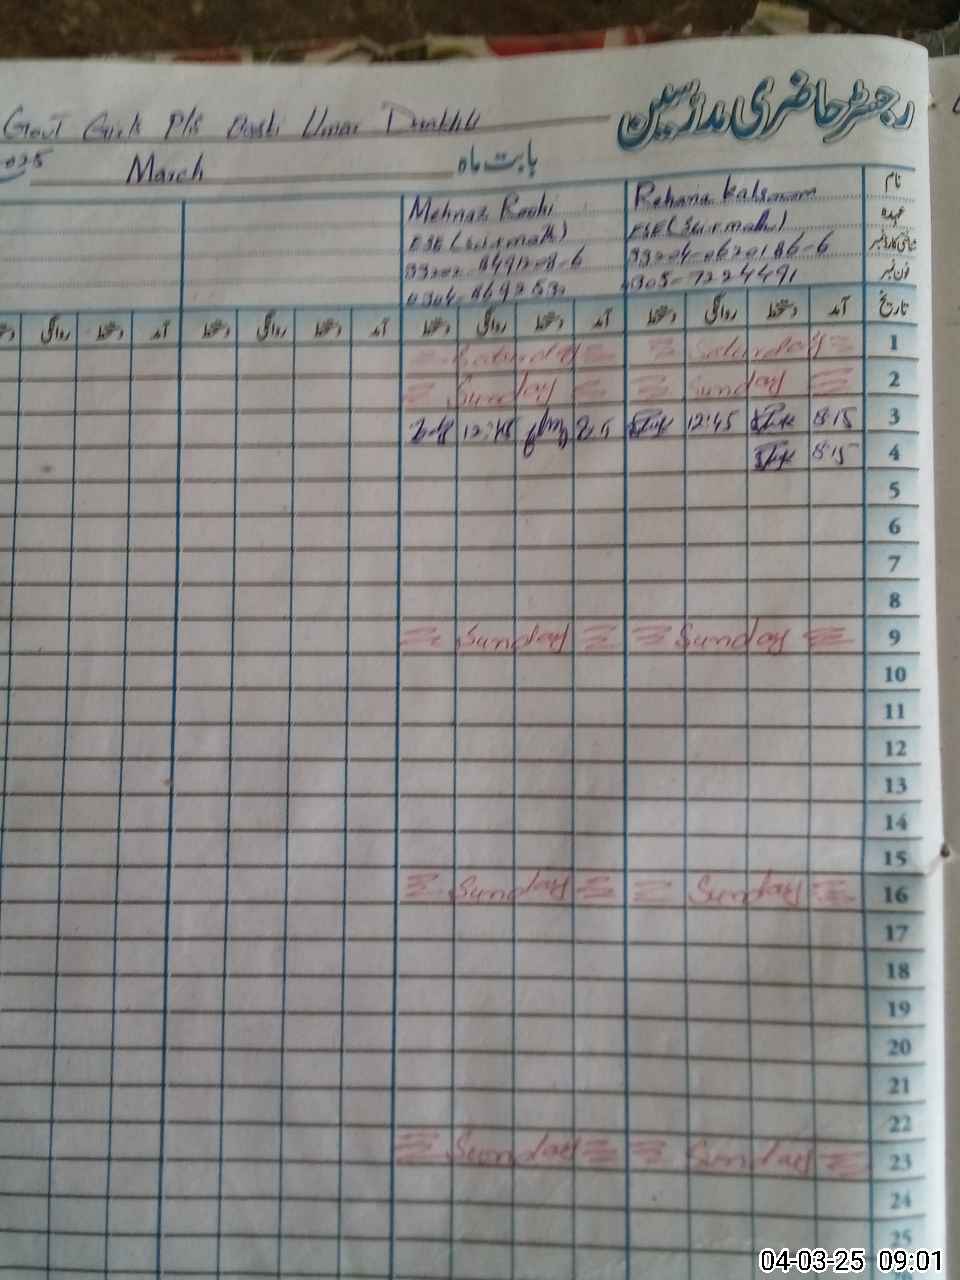 رجسٹر حاضری مدرسین
Govt Girls P/S Basti Umar
2025 March بابت ماہ
نام Rehana Kalsoom Mehnaz Roohi
عہدہ ESE (Sci & math) ESE (Sci & math)
شناختی کارڈ نمبر
فون نمبر 0305-7224491
تاریخ آمد دستخط روانگی دستخط آمد دستخط روانگی دستخط آمد دستخط روانگی دستخط آمد دستخط روانگی
1 Saturday Saturday
2 Sunday Sunday
3 8:15 12:45 12:45
4 8:15
5
6
7
8
9 Sunday Sunday
10
11
12
13
14
15
16 Sunday Sunday
17
18
19
20
21
22
23 Sunday Sunday
24
25
04-03-25 09:01